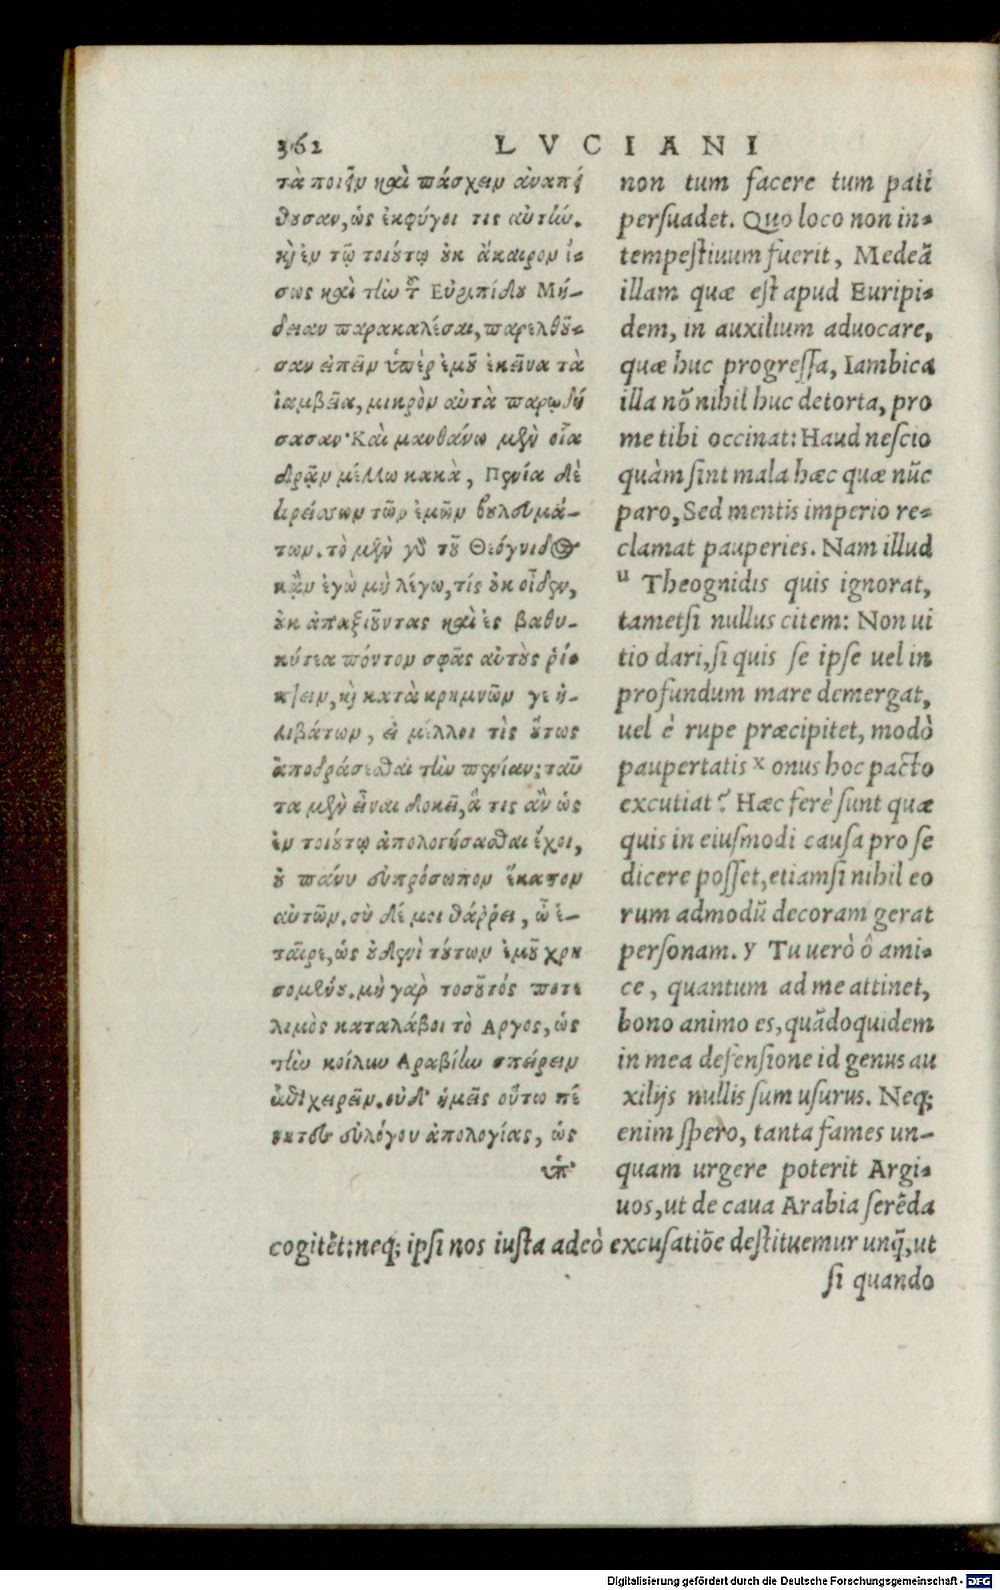 362 LVCIANI
τὰ ποιεῖν καὶ πάσχειν ἀναπεί
θουσαν, ὡς ἐκφύγοι τις αὐτήν.
καὶ ἐν τῷ τοιούτῳ οὐκ ἄκαιρον ἴ-
σως καὶ τὴν τοῦ Εὐριπίδου Μή-
δειαν παρακαλέσαι, παρελθοῦ-
σαν εἰπεῖν ὑπὲρ ἐμοῦ ἐκεῖνα τὰ
ἰαμβεῖα, μικρὸν αὐτὰ παρῳδή
σασαν· Καὶ μανθάνω μὲν οἷα
δρᾷν μέλλω κακὰ, Πενία δὲ
κρείσσων τῶν ἐμῶν βουλευμά-
των. τὸ μὲν γὰρ τοῦ Θεόγνιδος
κἂν ἐγὼ μὴ λέγω, τίς οὐκ οἶδεν,
οὐκ ἀπαξιοῦντας καὶ ἐς βαθυ-
κύτεα πόντον σφᾶς αὐτοὺς ῥί-
πτειν, καὶ κατὰ κρημνῶν γε ἠ-
λιβάτων, εἰ μέλλοι τὶς οὕτως
ἀποδράσεσθαι τὴν πενίαν; ταῦ
τα μὲν εἶναι δοκεῖ, ἅ τις ἂν ὡς
ἐν τοιούτῳ ἀπολογήσασθαι ἔχοι,
οὐ πάνυ εὐπρόσωπον ἕκατον
αὐτῶν. σὺ δέ μοι θάῤῥει, ὦ ἑ-
ταῖρε, ὡς οὐδενὶ τούτων ἐμοῦ χρη
σομένου. μὴ γὰρ τοσοῦτός ποτε
λιμὸς καταλάβοι τὸ Αργος, ὡς
τὴν κοίλην Αραβίαν σπείρειν
ἐπιχειρεῖν. οὐδ' ἡμεῖς οὕτω πέ
νητες εὐλόγου ἀπολογίας, ὡς
ὑπ'
non tum facere tum pati
persuadet. Quo loco non in-
tempestiuum fuerit, Medeã
illam quæ est apud Euripi-
dem, in auxilium aduocare,
quæ huc progressa, Iambica
illa nõ nihil huc detorta, pro
me tibi occinat: Haud nescio
quàm sint mala hæc quæ nũc
paro, Sed mentis imperio re-
clamat pauperies. Nam illud
u Theognidis quis ignorat,
tametsi nullus citem: Non ui
tio dari, si quis se ipse uel in
profundum mare demergat,
uel è rupe præcipitet, modò
paupertatis x onus hoc pacto
excutiat? Hæc ferè sunt quæ
quis in eiusmodi causa pro se
dicere posset, etiamsi nihil eo
rum admodũ decoram gerat
personam. y Tu uerò ô ami-
ce, quantum ad me attinet,
bono animo es, quãdoquidem
in mea defensione id genus au
xilijs nullis sum usurus. Neq;
enim spero, tanta fames un-
quam urgere poterit Argi-
uos, ut de caua Arabia serẽda
cogitẽt: neq; ipsi nos iusta adeò excusatiõe destituemur unq̃, ut
si quando
Digitalisierung gefördert durch die Deutsche Forschungsgemeinschaft - DFG